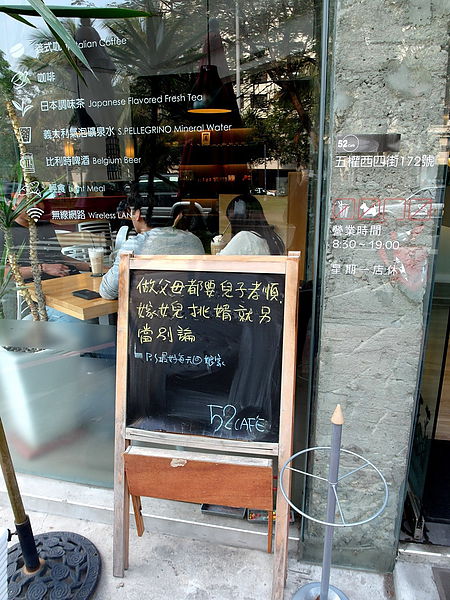 義式咖啡 Italian Coffee
咖啡
日本調味茶 Japanese Flavored Fresh Tea
義大利氣泡礦泉水 S.PELLEGRINO Mineral Water
比利時啤酒 Belgium Beer
輕食 Light Meal
無線網路 Wireless LAN
52
五權西四街172號
營業時間
8:30~19:00
星期一店休
做父母都要兒子孝順,
嫁女兒挑婿就另
當別論
P.S最好每天回娘家
52 CAFE